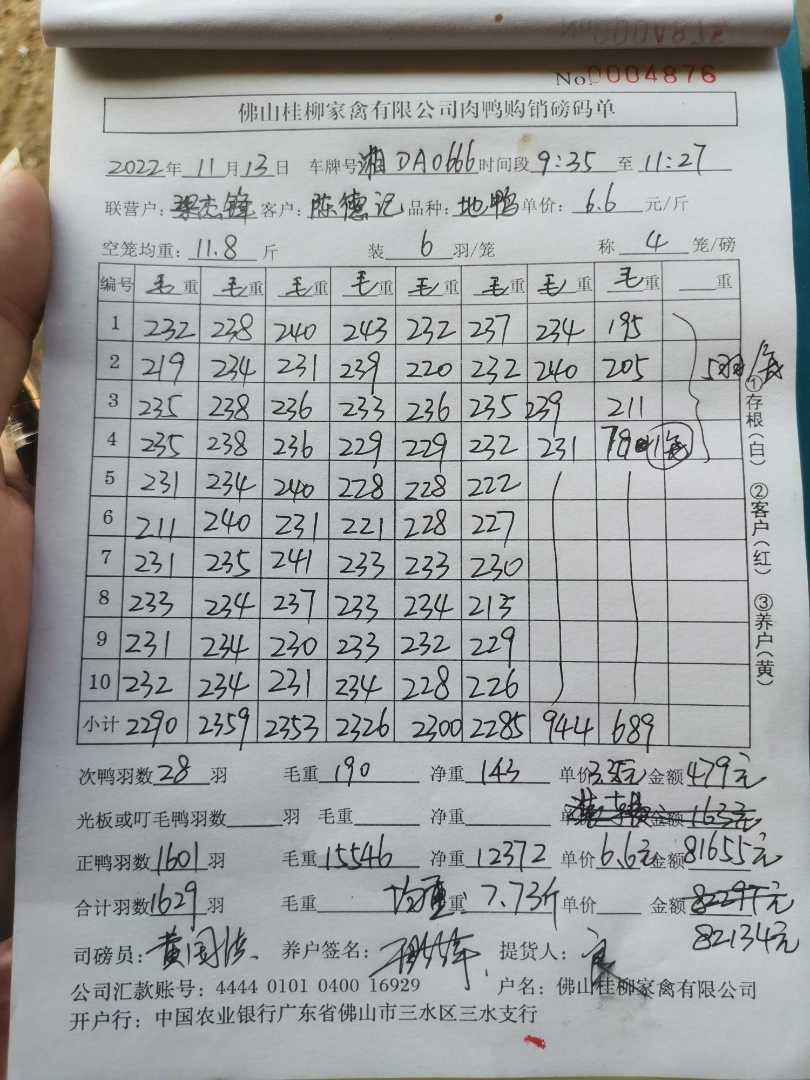 No. 0004876
佛山桂柳家禽有限公司肉鸭购销磅码单
2022年11月13日 车牌号湘DA0666时间段9:35至11:27
联营户: 客户:陈德记品种:地鸭单价:6.6元/斤
空笼均重:11.8斤 装6羽/笼 称4笼/磅
编号 毛重 毛重 毛重 毛重 毛重 毛重 毛重 毛重 重
1 232 238 240 243 232 237 234 195
2 219 234 231 239 220 232 240 205 5羽/
3 235 238 236 233 236 235 239 211
4 235 238 236 229 229 232 231 78
5 231 234 240 228 228 222
6 211 240 231 221 228 227
7 231 235 241 233 233 230
8 233 234 237 233 234 213
9 231 234 230 233 232 229
10 232 234 231 234 228 226
小计 2290 2359 2353 2326 2300 2285 944 689
次鸭羽数28羽 毛重190 净重143 单价3.35元金额479元
光板或叮毛鸭羽数 羽 毛重 净重 单 金额163元
正鸭羽数1601羽 毛重15546 净重12372 单价6.6元金额81655元
合计羽数1629羽 毛重 均重:重7.73斤单价 金额82297元
82134元
司磅员: 养户签名: 提货人:
公司汇款账号:4444 0101 0400 16929 户名:佛山桂柳家禽有限公司
开户行:中国农业银行广东省佛山市三水区三水支行
①存根(白) ②客户(红) ③养户(黄)